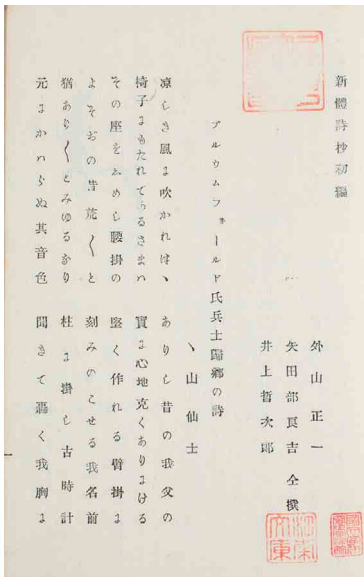 新體詩抄初編
外山正一
矢田部良吉 仝撰
井上哲次郎
ブルウムフ井ールド氏兵士歸鄕の詩
ヽ山仙士
凉しき風に吹かれはヽ ありし昔の我父の
椅子にもたれてうるさまハ 實に心地克くありける
その座をしめし腰掛の 堅く作れる臂掛に
よそぢの昔荒〱と 刻みのこせる我名前
猶あり〱とみゆるなり 柱に掛し古時計
元にかハらぬ其音色 聞きて轟く我胸に
一